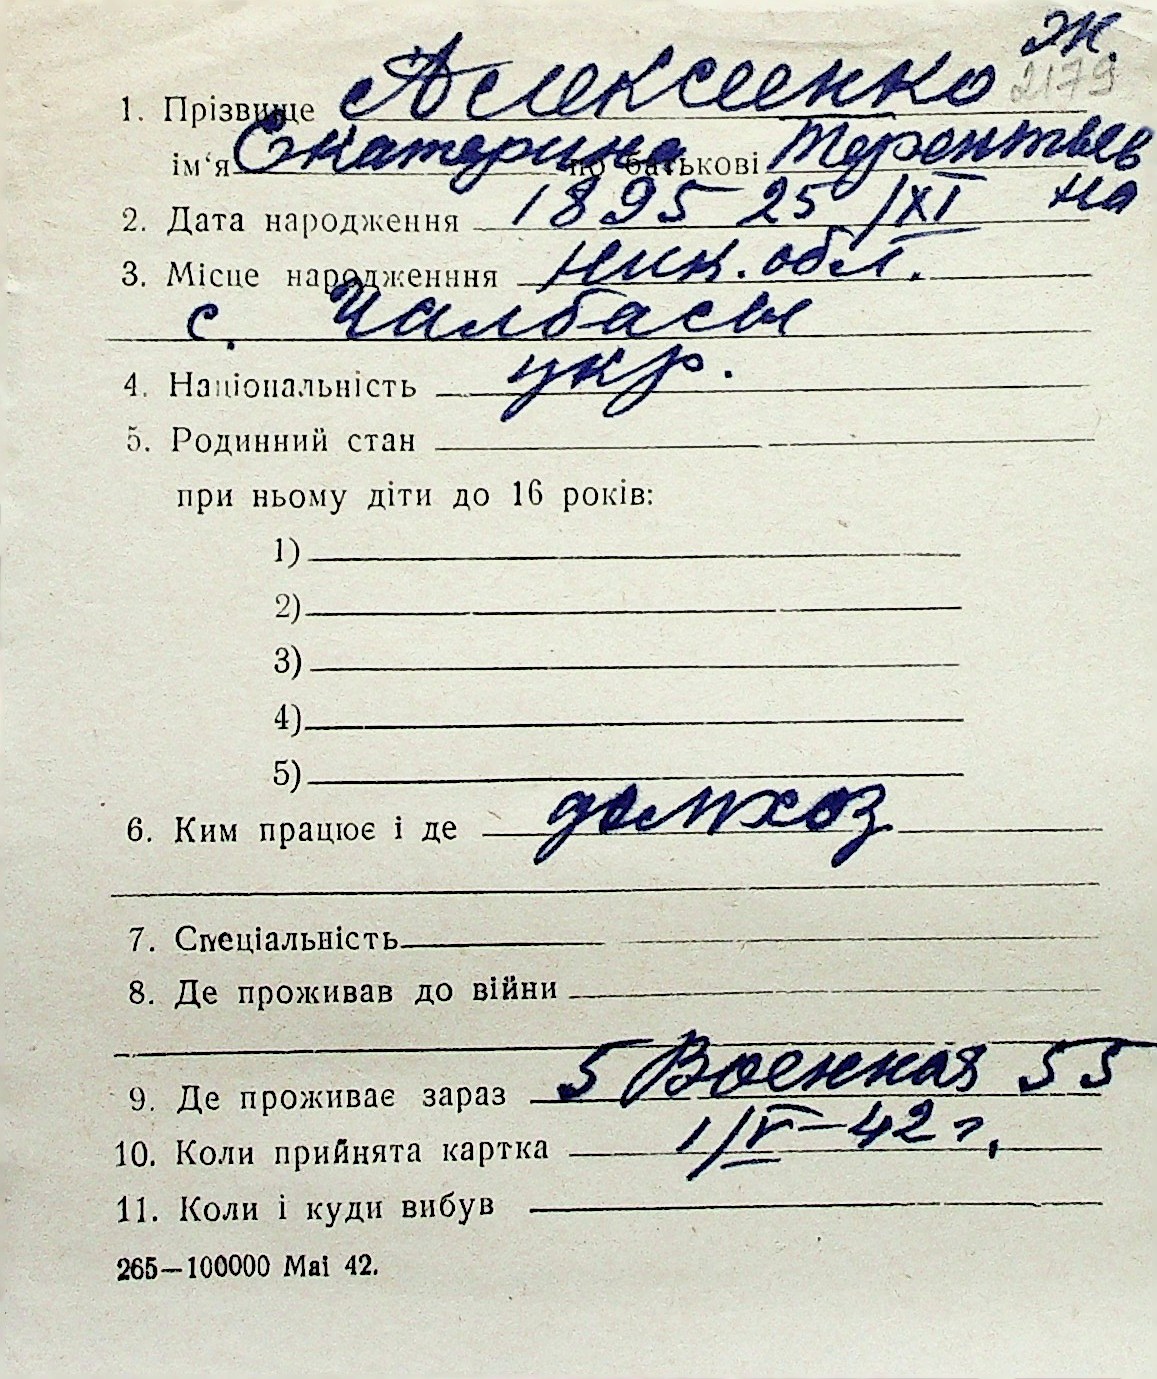 ж.
1. Прізвище Алексеенко 2179
ім‘я Екатерина по батькові Терентьев
на
2. Дата народження 1895 25/XI
3. Місце народженння Ник. обл.
с. Чалбасы
4. Національність укр.
5. Родинний стан
при ньому діти до 16 років:
1)
2)
3)
4)
5)
6. Ким працює і де домхоз
7. Спеціальність
8. Де проживав до війни
9. Де проживає зараз 5 Военная 55
10. Коли прийнята картка 1/V-42 г.
11. Коли і куди вибув
265—100000 Mai 42.